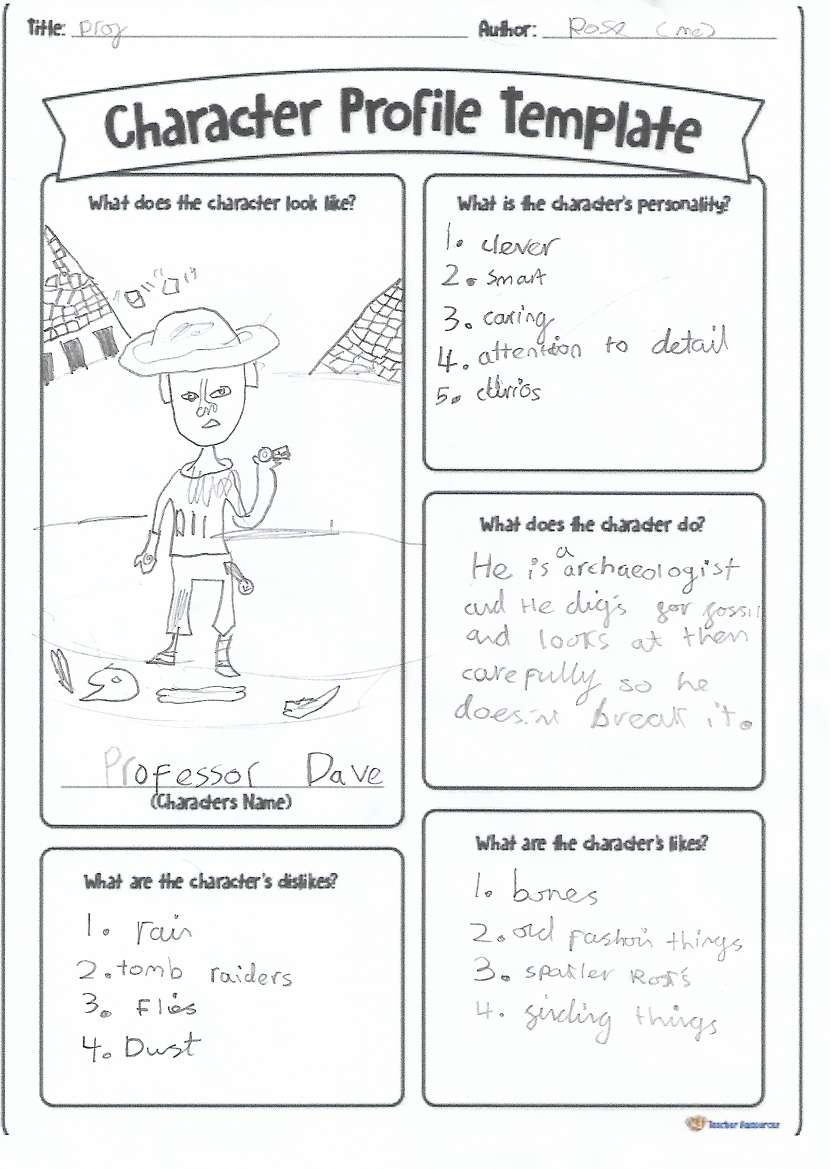 Title: Prof
Author: Rose (me)
Character Profile Template
What does the character look like?
Professor Dave
(Characters Name)
What is the character's personality?
1. clever
2. smart
3. caring
4. attention to detail
5.
What does the character do?
He is a archaeologist
and He dig's for fossil
and looks at them
carefully so he
does'nt break it.
What are the character's dislikes?
1. rain
2. tomb raiders
3. Flies
4. Dust
What are the character's likes?
1. bones
2. old fashoin things
3.
4. finding things
Teacher Resources